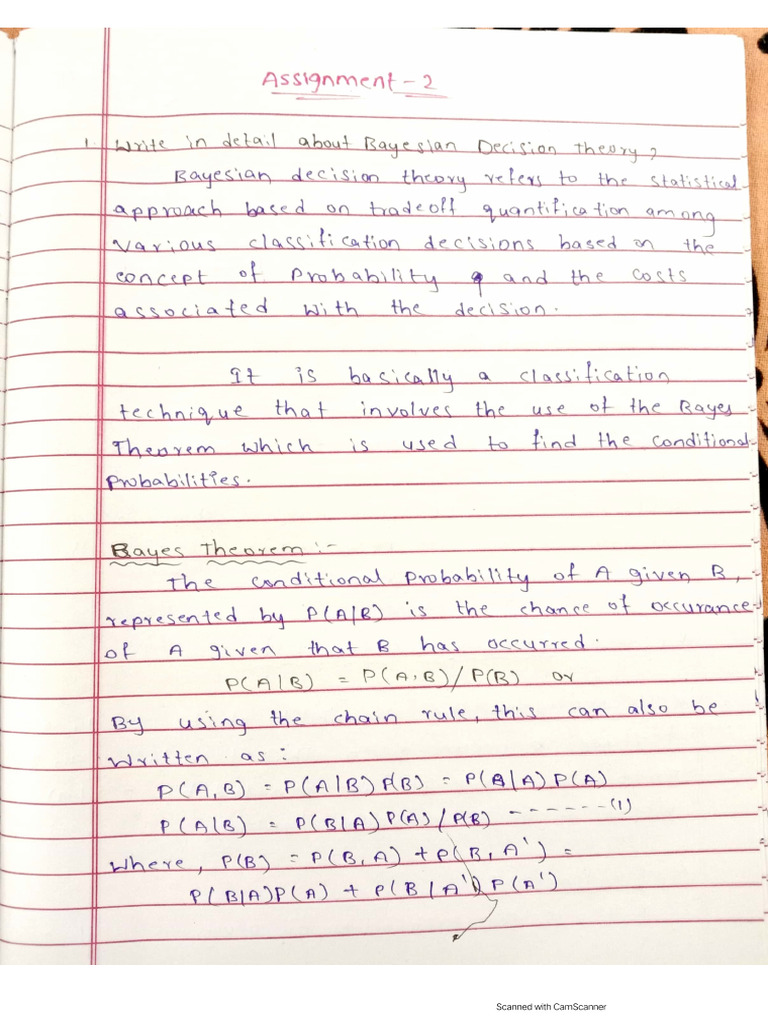 Assignment - 2
1. Write in detail about Bayesian Decision theory?
Bayesian decision theory refers to the statistical
approach based on tradeoff quantification among
various classification decisions based on the
concept of Probability and the costs
associated with the decision.
It is basically a classification
technique that involves the use of the Bayes
Theorem which is used to find the conditional
Probabilities.
Bayes Theorem :-
The conditional Probability of A given B,
represented by P(A|B) is the chance of occurance
of A given that B has occurred.
P(A|B) = P(A,B)/P(B) or
By using the chain rule, this can also be
Written as:
P(A,B) = P(A|B) P(B) = P(B|A) P(A)
P(A|B) = P(B|A) P(A) / P(B) - - - - - - - (1)
Where, P(B) = P(B,A) + P(B,A') =
P(B|A)P(A) + P(B|A') P(A')
Scanned with CamScanner